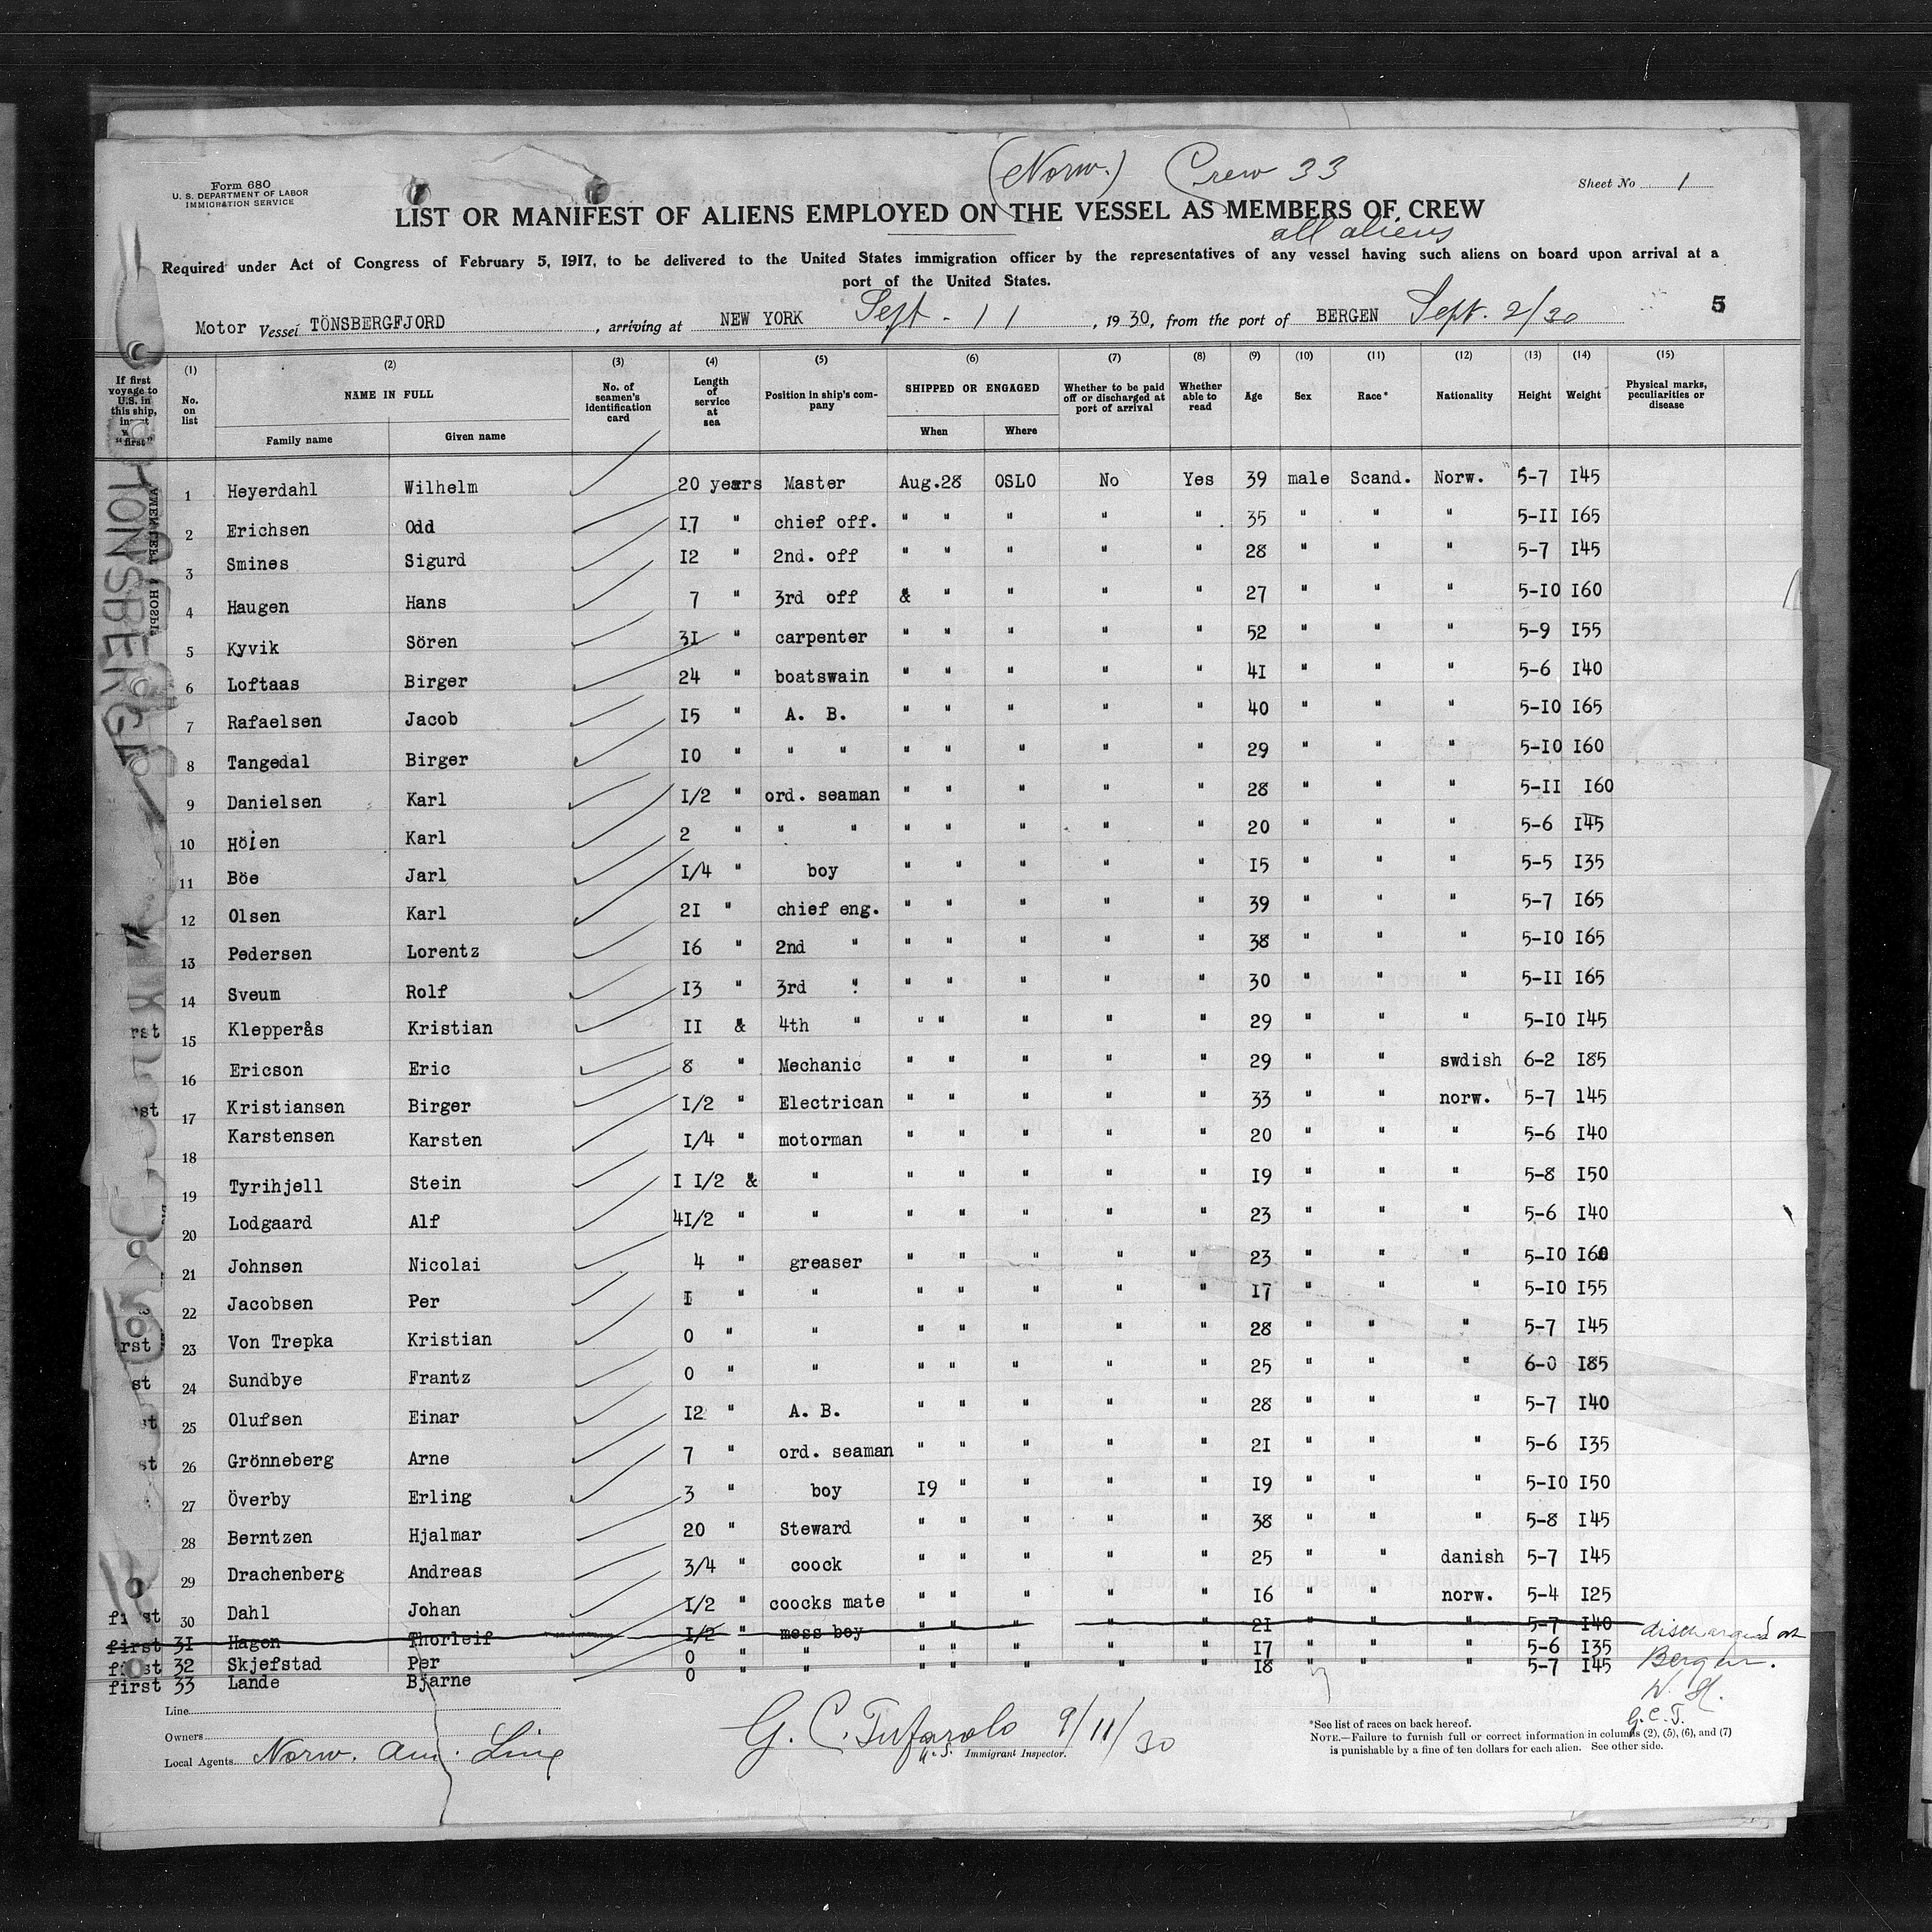 (Norw.) Crew 33
Form 680
U. S. DEPARTMENT OF LABOR
IMMIGRATION SERVICE
Sheet No 1
LIST OR MANIFEST OF ALIENS EMPLOYED ON THE VESSEL AS MEMBERS OF CREW
all aliens
Required under Act of Congress of February 5, 1917, to be delivered to the United States immigration officer by the representatives of any vessel having such aliens on board upon arrival at a
port of the United States.
Motor Vessel TÖNSBERGFJORD, arriving at NEW YORK Sept - 11, 1930, from the port of BERGEN Sept. 2/30 5
(1) (2) (3) (4) (5) (6) (7) (8) (9) (10) (11) (12) (13) (14) (15)
If first voyage to U.S. in this ship, "first" No. on list NAME IN FULL Family name Given name No. of seamen's identification card Length of service at sea Position in ship's company SHIPPED OR ENGAGED When Where Whether to be paid off or discharged at port of arrival Whether able to read Age Sex Race* Nationality Height Weight Physical marks, peculiarities or disease
1 Heyerdahl Wilhelm 20 years Master Aug.28 OSLO No Yes 39 male Scand. Norw. 5-7 I45
2 Erichsen Odd I7 " chief off. " " " " " 35 " " " 5-II I65
3 Smines Sigurd I2 " 2nd. off " " " " " 28 " " " 5-7 I45
4 Haugen Hans 7 " 3rd off & " " " " 27 " " " 5-I0 I60
5 Kyvik Sören 3I " carpenter " " " " " 52 " " " 5-9 I55
6 Loftaas Birger 24 " boatswain " " " " " 4I " " " 5-6 I40
7 Rafaelsen Jacob I5 " A. B. " " " " " 40 " " " 5-I0 I65
8 Tangedal Birger I0 " " " " " " " " 29 " " " 5-I0 I60
9 Danielsen Karl I/2 " ord. seaman " " " " " 28 " " " 5-II I60
10 Höien Karl 2 " " " " " " " " 20 " " " 5-6 I45
11 Böe Jarl I/4 " boy " " " " " I5 " " " 5-5 I35
12 Olsen Karl 2I " chief eng. " " " " " 39 " " " 5-7 I65
13 Pedersen Lorentz I6 " 2nd " " " " " " 38 " " " 5-I0 I65
14 Sveum Rolf I3 " 3rd " " " " " " 30 " " " 5-II I65
rst 15 Klepperås Kristian II & 4th " " " " " " 29 " " " 5-I0 I45
16 Ericson Eric 8 " Mechanic " " " " " 29 " " swdish 6-2 I85
rst 17 Kristiansen Birger I/2 " Electrican " " " " " 33 " " norw. 5-7 145
18 Karstensen Karsten I/4 " motorman " " " " " 20 " " " 5-6 I40
19 Tyrihjell Stein I I/2 & " " " " " " I9 " " " 5-8 I50
20 Lodgaard Alf 4I/2 " " " " " " " 23 " " " 5-6 I40
21 Johnsen Nicolai 4 " greaser " " " " " 23 " " " 5-I0 I60
22 Jacobsen Per I " " " " " " " I7 " " " 5-I0 I55
irst 23 Von Trepka Kristian 0 " " " " " " " 28 " " " 5-7 I45
st 24 Sundbye Frantz 0 " " " " " " " 25 " " " 6-0 I85
st 25 Olufsen Einar I2 " A. B. " " " " " 28 " " " 5-7 I40
st 26 Grönneberg Arne 7 " ord. seaman " " " " " 2I " " " 5-6 I35
27 Överby Erling 3 " boy I9 " " " " I9 " " " 5-I0 I50
28 Berntzen Hjalmar 20 " Steward " " " " " 38 " " " 5-8 I45
29 Drachenberg Andreas 3/4 " coock " " " " " 25 " " danish 5-7 I45
first 30 Dahl Johan I/2 " coocks mate " " " " " I6 " " norw. 5-4 I25
first 31 Hagen Thorleif I/2 " mess boy " " " " " 2I " " " 5-7 I40 discharged at
first 32 Skjefstad Per 0 " " " " " " " I7 " " " 5-6 I35 Bergen.
first 33 Lande Bjarne 0 " " " " " " " I8 " " " 5-7 I45 W. H.
G.C.T.
Line
Owners
Local Agents Norw. Am. Line
G. C. Tufarolo 9/11/30
U.S. Immigrant Inspector.
*See list of races on back hereof.
NOTE.—Failure to furnish full or correct information in columns (2), (5), (6), and (7)
is punishable by a fine of ten dollars for each alien. See other side.